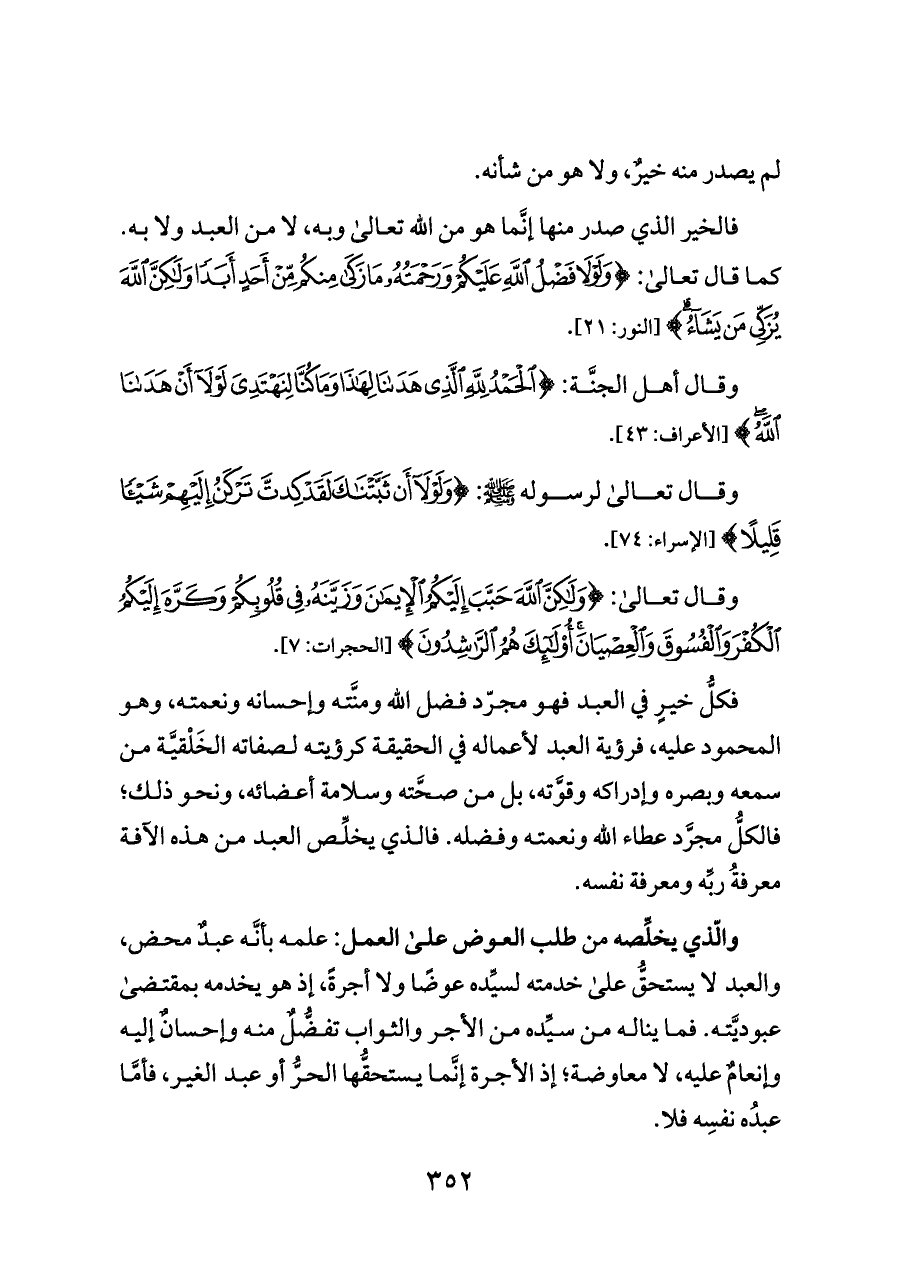 لم يصدر منه خيرٌ، ولا هو من شأنه.
فالخير الذي صدر منها إنَّما هو من الله تعالىٰ وبه، لا من العبد ولا به.
كما قال تعالىٰ: ﴿وَلَوْلَا فَضْلُ ٱللَّهِ عَلَيْكُمْ وَرَحْمَتُهُۥ مَا زَكَىٰ مِنكُم مِّنْ أَحَدٍ أَبَدًا وَلَٰكِنَّ ٱللَّهَ
يُزَكِّي مَن يَشَآءُۗ﴾ [النور: ٢١].
وقال أهل الجنَّة: ﴿ٱلْحَمْدُ لِلَّهِ ٱلَّذِى هَدَىٰنَا لِهَٰذَا وَمَا كُنَّا لِنَهْتَدِىَ لَوْلَآ أَنْ هَدَىٰنَا
ٱللَّهُۖ﴾ [الأعراف: ٤٣].
وقال تعالىٰ لرسوله ﷺ: ﴿وَلَوْلَآ أَن ثَبَّتْنَٰكَ لَقَدْ كِدتَّ تَرْكَنُ إِلَيْهِمْ شَيْـًٔا
قَلِيلًا﴾ [الإسراء: ٧٤].
وقال تعالىٰ: ﴿وَلَٰكِنَّ ٱللَّهَ حَبَّبَ إِلَيْكُمُ ٱلْإِيمَٰنَ وَزَيَّنَهُۥ فِى قُلُوبِكُمْ وَكَرَّهَ إِلَيْكُمُ
ٱلْكُفْرَ وَٱلْفُسُوقَ وَٱلْعِصْيَانَۚ أُوْلَٰٓئِكَ هُمُ ٱلرَّٰشِدُونَ﴾ [الحجرات: ٧].
فكلُّ خيرٍ في العبد فهو مجرّد فضل الله ومنَّته وإحسانه ونعمته، وهو
المحمود عليه، فرؤية العبد لأعماله في الحقيقة كرؤيته لصفاته الخَلْقيَّة من
سمعه وبصره وإدراكه وقوَّته، بل من صحَّته وسلامة أعضائه، ونحو ذلك؛
فالكلُّ مجرَّد عطاء الله ونعمته وفضله. فالذي يخلِّص العبد من هذه الآفة
معرفةُ ربِّه ومعرفة نفسه.
والّذي يخلِّصه من طلب العوض علىٰ العمل: علمه بأنَّه عبدٌ محض،
والعبد لا يستحقُّ علىٰ خدمته لسيِّده عوضًا ولا أجرةً، إذ هو يخدمه بمقتضىٰ
عبوديَّته. فما يناله من سيِّده من الأجر والثواب تفضُّلٌ منه وإحسانٌ إليه
وإنعامٌ عليه، لا معاوضة؛ إذ الأجرة إنَّما يستحقُّها الحرُّ أو عبد الغير، فأمَّا
عبدُه نفسِه فلا.
٣٥٢